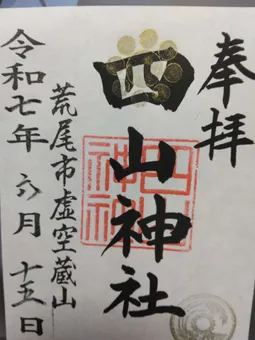 奉拝
四山神社
四山神社
荒尾市虚空蔵山
令和七年 六月 十五日